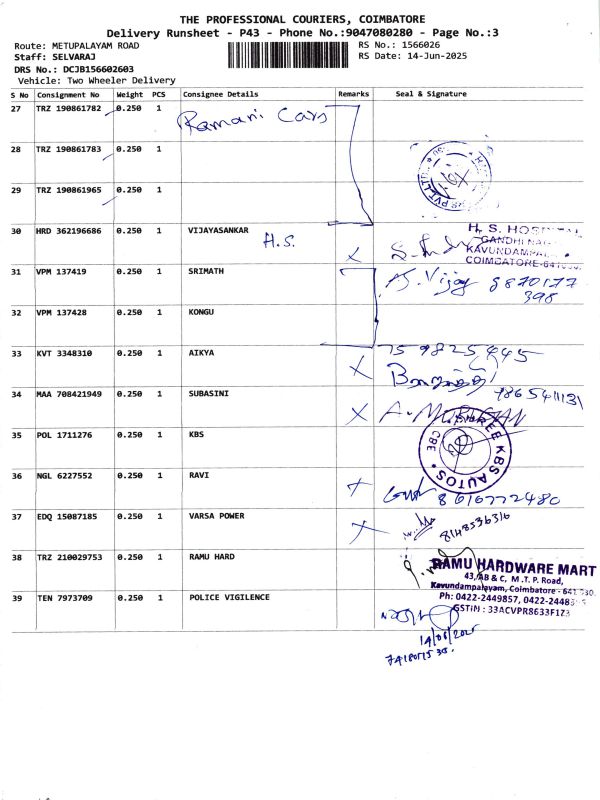 THE PROFESSIONAL COURIERS, COIMBATORE
Delivery Runsheet - P43 - Phone No.:9047080280 - Page No.:3
Route: METUPALAYAM ROAD
RS No.: 1566026
Staff: SELVARAJ
RS Date: 14-Jun-2025
DRS No.: DCJB156602603
Vehicle: Two Wheeler Delivery
S No Consignment No Weight PCS Consignee Details Remarks Seal & Signature
27 TRZ 190861782 0.250 1 Ramani Cars
28 TRZ 190861783 0.250 1
29 TRZ 190861965 0.250 1
30 HRD 362196686 0.250 1 VIJAYASANKAR
H.S.
H. S. HOSPITAL
GANDHI NAG
KAVUNDAMPAL
COIMBATORE-641030.
31 VPM 137419 0.250 1 SRIMATH
Vijay 9870177
398
32 VPM 137428 0.250 1 KONGU
33 KVT 3348310 0.250 1 AIKYA
34 MAA 708421949 0.250 1 SUBASINI
A. MURUGAN
35 POL 1711276 0.250 1 KBS
SHREE KBS AUTOS
CBE
36 NGL 6227552 0.250 1 RAVI
8616772480
37 EDQ 15087185 0.250 1 VARSA POWER
8148536316
38 TRZ 210029753 0.250 1 RAMU HARD
RAMU HARDWARE MART
43, AB & C, M.T.P. Road,
Kavundampalayam, Coimbatore - 641 030.
Ph: 0422-2449857, 0422-2448
GSTIN : 33ACVPR8633F1Z3
39 TEN 7973709 0.250 1 POLICE VIGILENCE
14/06/2025